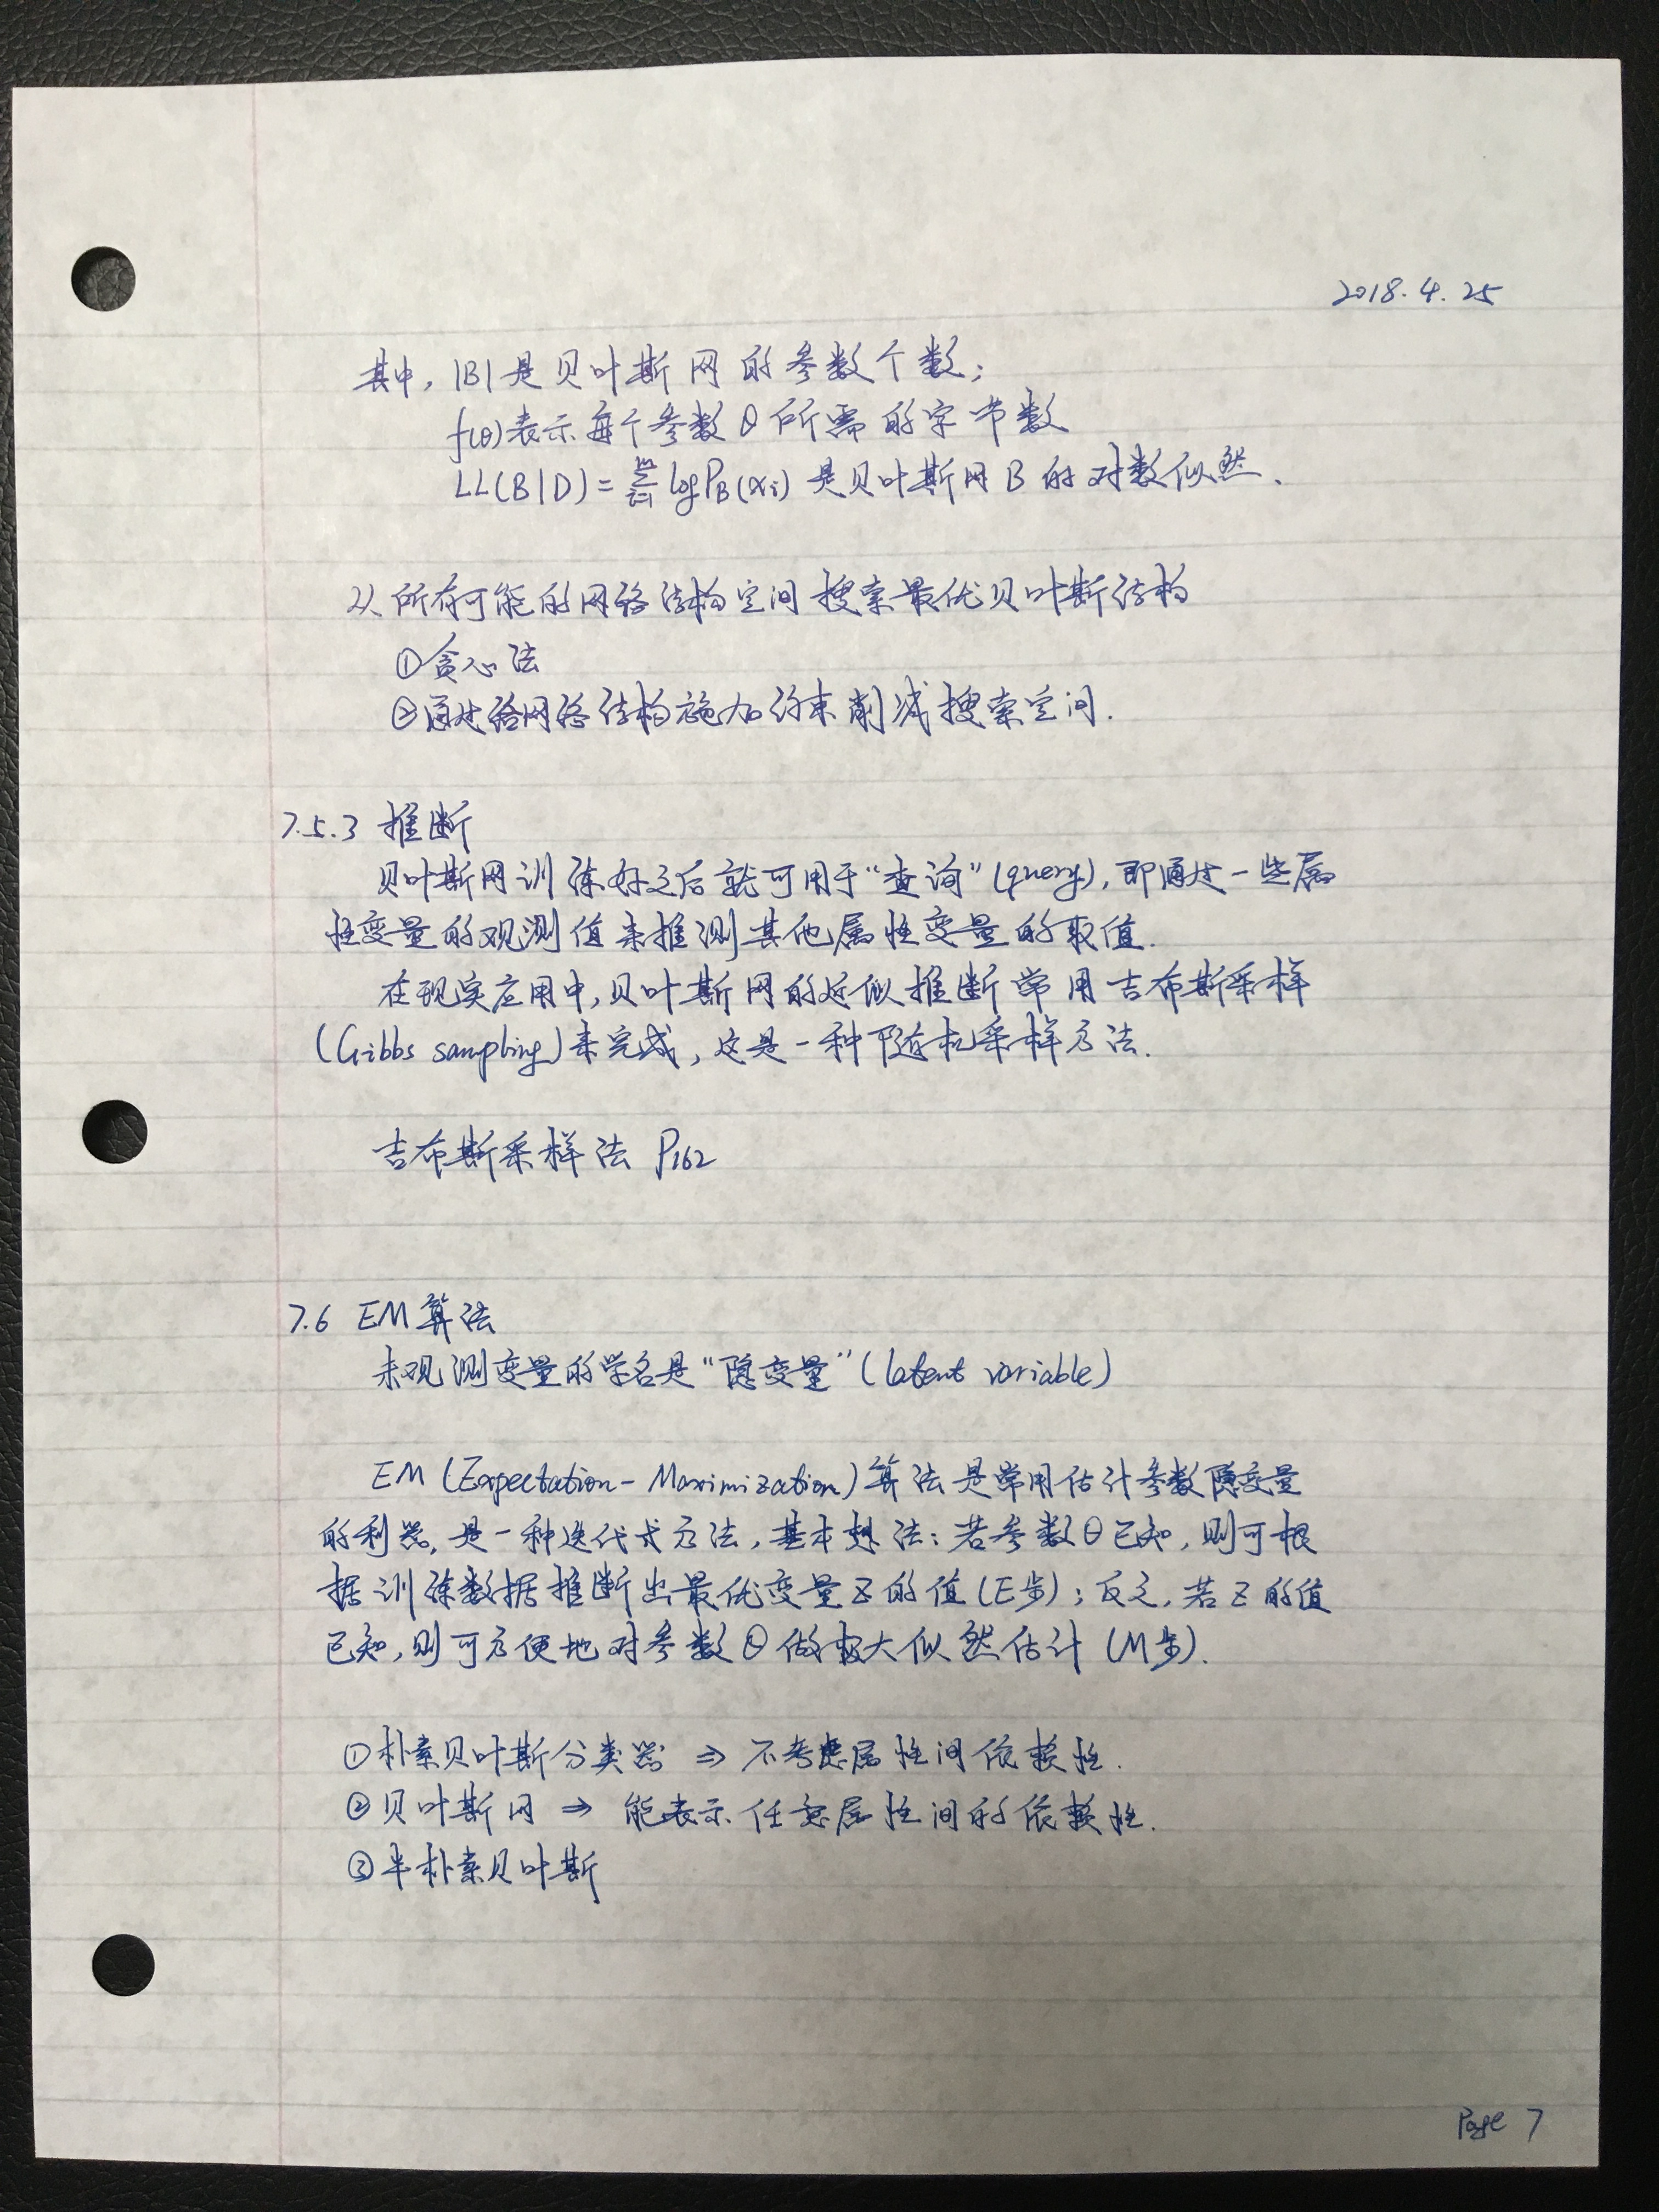 2018.4.25
其中, |B|是贝叶斯网的参数个数;
f(θ)表示每个参数θ所需的字节数
LL(B|D)=∑_{i=1}^{m} logP_B(x_i) 是贝叶斯网B的对数似然.
从所有可能的网络结构空间搜索最优贝叶斯结构
①贪心法
②通过给网络结构施加约束削减搜索空间.
7.5.3 推断
贝叶斯网训练好之后就可用于“查询”(query), 即通过一些属
性变量的观测值来推测其他属性变量的取值.
在现实应用中, 贝叶斯网的近似推断常用吉布斯采样
(Gibbs sampling)来完成, 这是一种随机采样方法.
吉布斯采样法 P162
7.6 EM算法
未观测变量的学名是“隐变量”(latent variable)
EM (Expectation-Maximization)算法是常用估计参数隐变量
的利器, 是一种迭代式方法, 基本想法: 若参数θ已知, 则可根
据训练数据推断出最优变量Z的值(E步); 反之, 若Z的值
已知, 则可方便地对参数θ做极大似然估计 (M步).
①朴素贝叶斯分类器 ⇒ 不考虑属性间依赖性.
②贝叶斯网 ⇒ 能表示任意属性间的依赖性.
③半朴素贝叶斯
Page 7